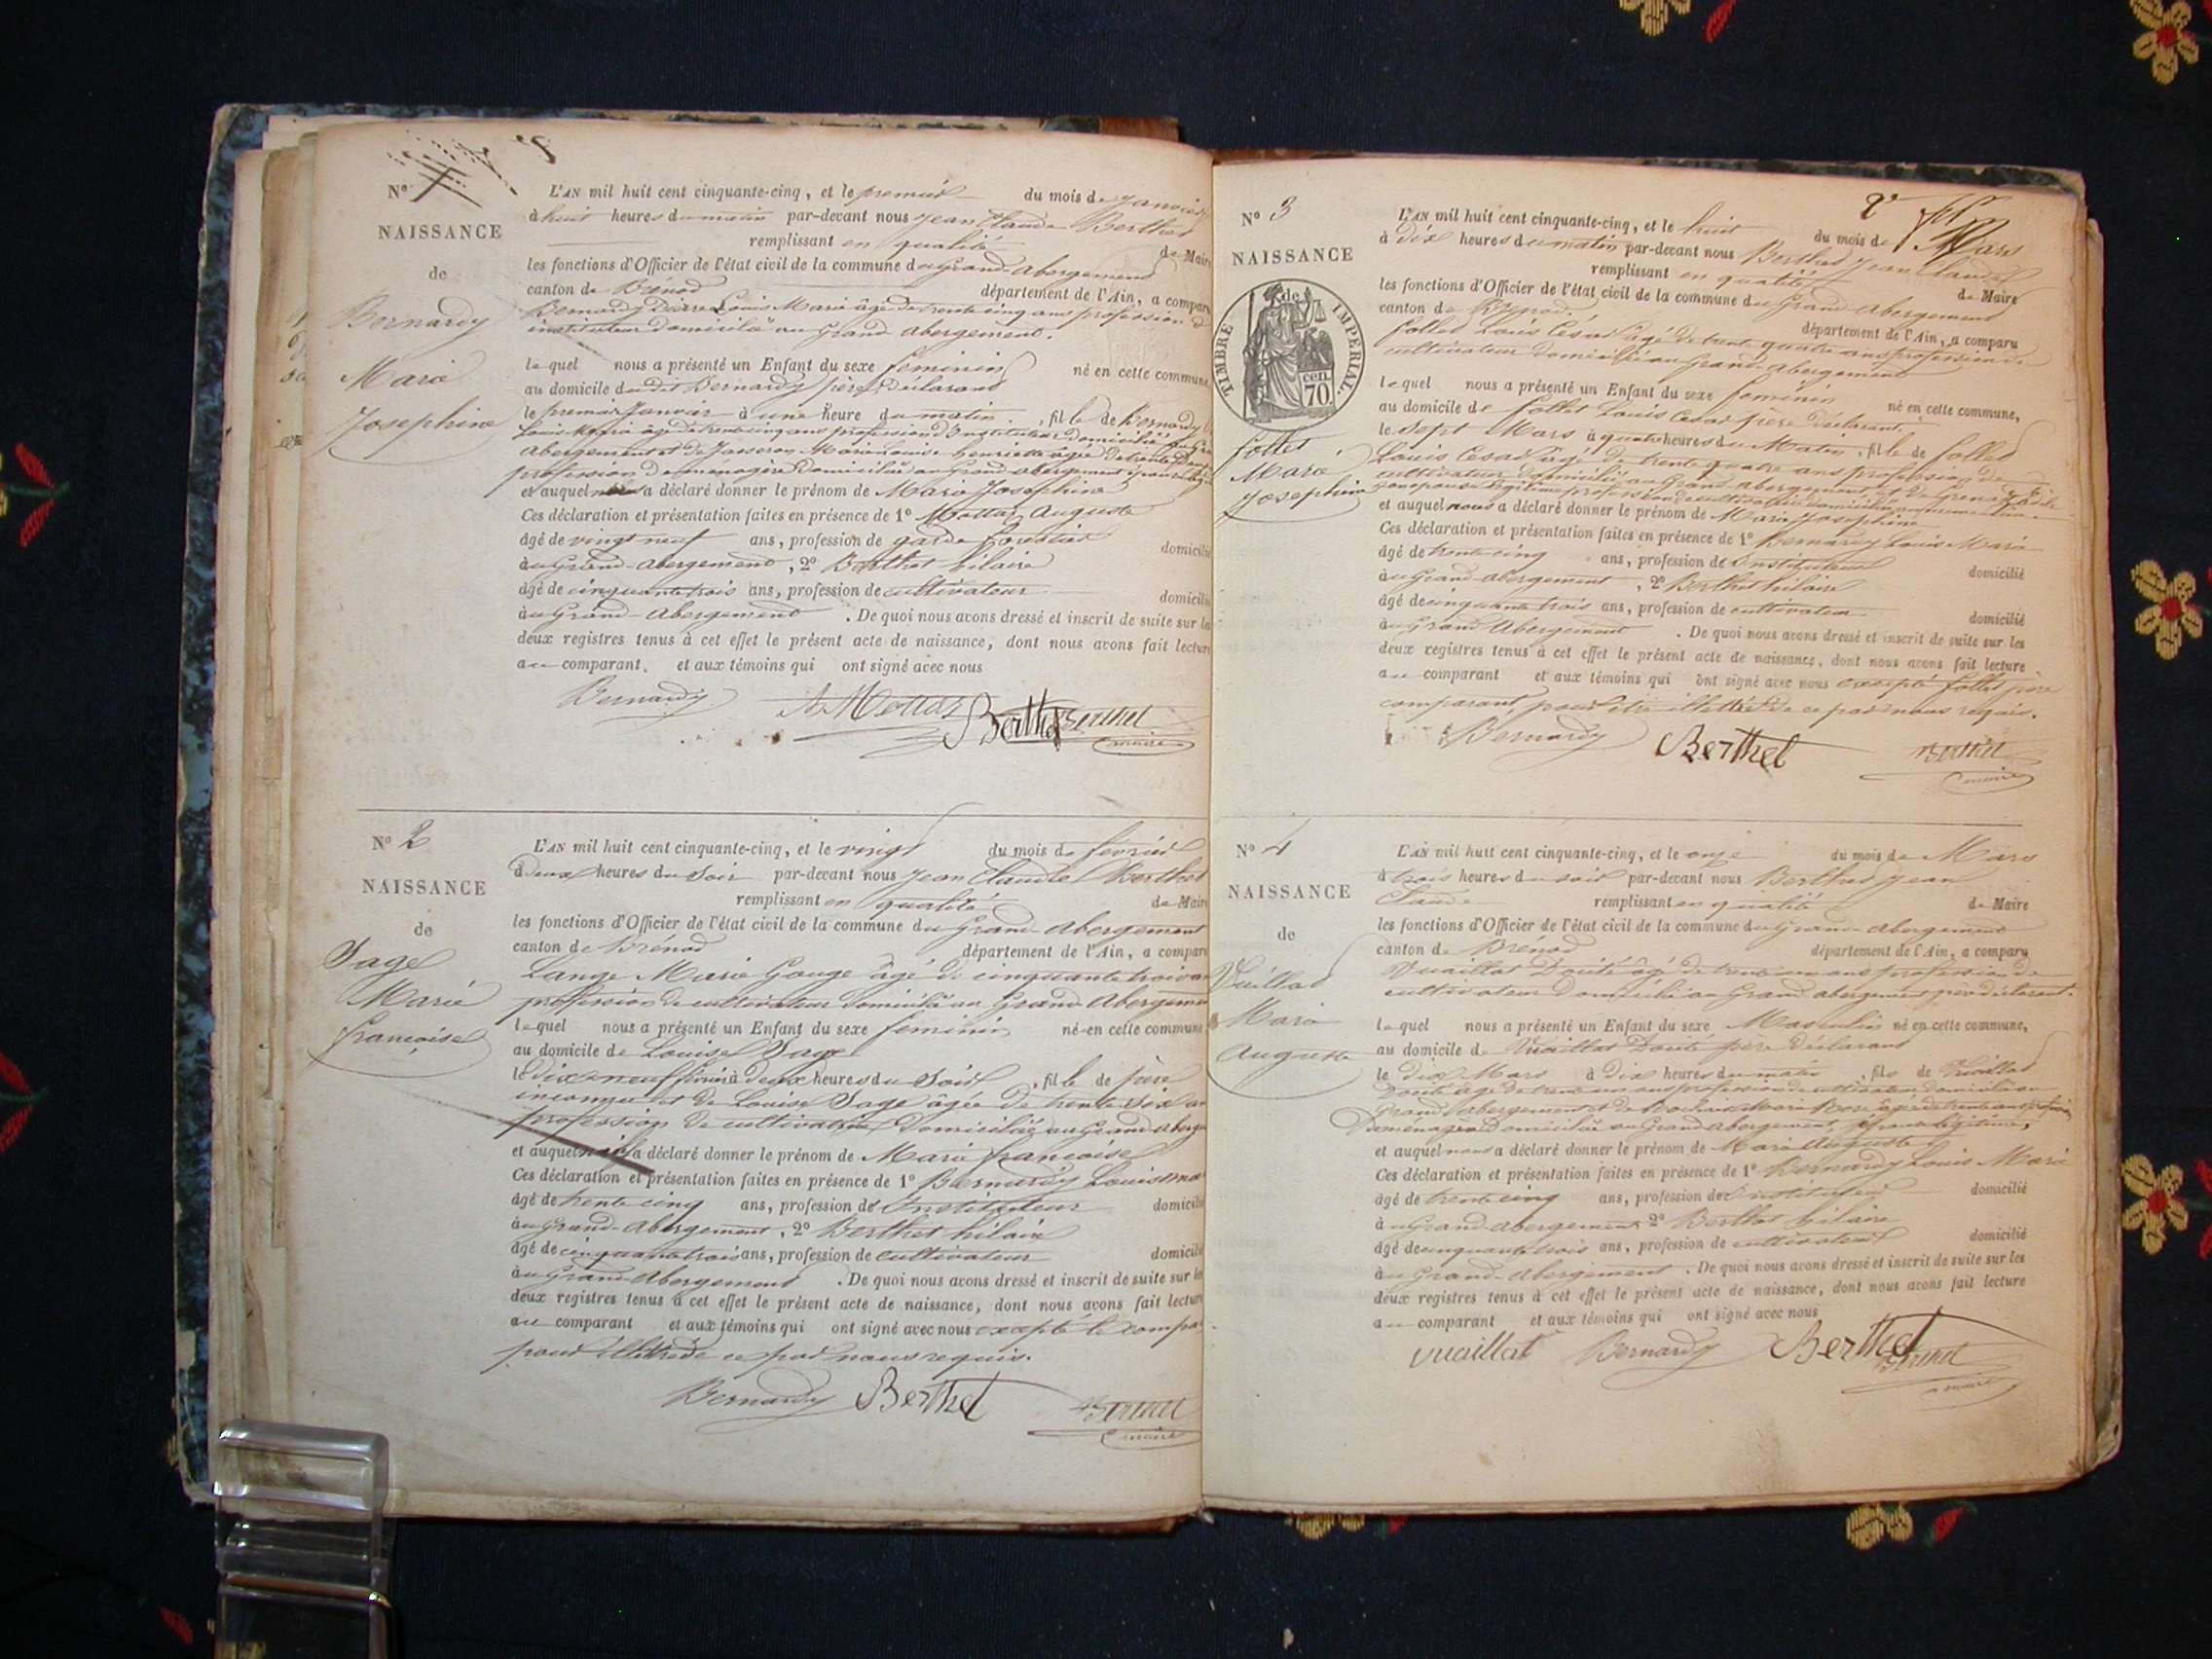 Nº 1
NAISSANCE
de
Bernardy
Marie
Josephine
L'AN mil huit cent cinquante-cinq, et le premier du mois de Janvier
à huit heures du matin par-devant nous Jean Claude Berthet
remplissant en qualité de Maire
les fonctions d'Officier de l'état civil de la commune du Grand-Abergement
canton de Brénod département de l'Ain, a comparu
Bernardy Louis Marie âgé de trente cinq ans profession d
instituteur domicilié au Grand Abergement.
lequel nous a présenté un Enfant du sexe feminin né en cette commune,
au domicile dudit Bernardy père Déclarant
le premier Janvier à une heure du matin, fille de Bernardy
Louis Marie âgé de trente cinq ans profession d'Instituteur domicilié au Grd
Abergement et de Marie Louise henriette âgée de trente
profession de menagère Domiciliée au Grand abergement
et auquel a déclaré donner le prénom de Marie Josephine
Ces déclaration et présentation faites en présence de 1º Mottaz Auguste
âgé de vingt neuf ans, profession de garde forestier domicilié
au Grand-abergement, 2º Berthet hilaire
âgé de cinquante trois ans, profession de cultivateur domicilié
au Grand-Abergement. De quoi nous avons dressé et inscrit de suite sur les
deux registres tenus à cet effet le présent acte de naissance, dont nous avons fait lecture
au comparant, et aux témoins qui ont signé avec nous
Bernardy A. Mottaz Berthet Berthet
maire
Nº 2
NAISSANCE
de
Sage
Marie
francoise
L'AN mil huit cent cinquante-cinq, et le vingt du mois de février
à Deux heures du Soir par-devant nous Jean Claude Berthet
remplissant en qualité de Maire
les fonctions d'Officier de l'état civil de la commune du Grand-Abergement
canton de Brénod département de l'Ain, a comparu
Lange Marie Gouge âgé de cinquante trois an
profession de cultivateur domicilié au Grand Abergemen
lequel nous a présenté un Enfant du sexe feminin né en cette commune
au domicile de Louise Sage
le dix neuf février à deux heures du Soir, fille de père
inconnu et de Louise Sage âgée de trente six an
profession de cultivatrice Domiciliée au Grand Aberge
et auquel a déclaré donner le prénom de Marie francoise
Ces déclaration et présentation faites en présence de 1º Bernardy Louis Mar
âgé de trente cinq ans, profession d'Instituteur domicilié
au Grand-Abergement, 2º Berthet hilaire
âgé de cinquante trois ans, profession de cultivateur domicilié
au Grand-Abergement. De quoi nous avons dressé et inscrit de suite sur les
deux registres tenus à cet effet le présent acte de naissance, dont nous avons fait lecture
au comparant et aux témoins qui ont signé avec nous excepté le compar
pour illettré de ce par nous requis.
Bernardy Berthet Berthet
maire
Nº 3
NAISSANCE
de
TIMBRE IMPERIAL
cen. 70.
follet
Marie
Josephine
L'AN mil huit cent cinquante-cinq, et le huit du mois de Mars
à Dix heures du matin par-devant nous Berthet Jean Claude
remplissant en qualité de Maire
les fonctions d'Officier de l'état civil de la commune du Grand Abergement
canton de Brénod. département de l'Ain, a comparu
follet Louis César âgé de trente quatre ans profession de
cultivateur domicilié au Grand-Abergement
lequel nous a présenté un Enfant du sexe feminin né en cette commune,
au domicile de follet Louis César père Déclarant.
le Sept Mars à quatre heures du Matin, fille de follet
Louis César âgé de trente quatre ans profession de
cultivateur domicilié au Grand-abergement et de
son épouse légitime profession de
et auquel nous a déclaré donner le prénom de Marie Josephine
Ces déclaration et présentation faites en présence de 1º Bernardy Louis Marie
âgé de trente cinq ans, profession d'Instituteur domicilié
au Grand-abergement, 2º Berthet hilaire
âgé de cinquante trois ans, profession de cultivateur domicilié
au Grand Abergement. De quoi nous avons dressé et inscrit de suite sur les
deux registres tenus à cet effet le présent acte de naissance, dont nous avons fait lecture
au comparant et aux témoins qui ont signé avec nous excepté follet père
comparant pour être illettré de ce par nous requis.
Bernardy Berthet Berthet
maire
Nº 4
NAISSANCE
de
Vuillat
Marie
Auguste
L'AN mil huit cent cinquante-cinq, et le onze du mois de Mars
à trois heures du soir par-devant nous Berthet Jean
Claude remplissant en qualité de Maire
les fonctions d'Officier de l'état civil de la commune du Grand-Abergement
canton de Brénod département de l'Ain, a comparu
Vuaillat âgé de trente ans profession de
cultivateur Domicilié au Grand abergement père déclarant.
lequel nous a présenté un Enfant du sexe Masculin né en cette commune,
au domicile de Vuaillat père Déclarant
le Dix Mars à Dix heures du matin, fils de Vuaillat
âgé de trente ans profession de cultivateur domicilié au
Grand Abergement et de Marie Rose âgée de trente ans profession
De menagère Domiciliée au Grand Abergement épouse légitime,
et auquel nous a déclaré donner le prénom de Marie Auguste
Ces déclaration et présentation faites en présence de 1º Bernardy Louis Marie
âgé de trente cinq ans, profession d'Instituteur domicilié
au Grand-abergement 2º Berthet hilaire
âgé de cinquante trois ans, profession de cultivateur domicilié
au Grand-Abergement. De quoi nous avons dressé et inscrit de suite sur les
deux registres tenus à cet effet le présent acte de naissance, dont nous avons fait lecture
au comparant et aux témoins qui ont signé avec nous
Vuaillat Bernardy Berthet Berthet
maire